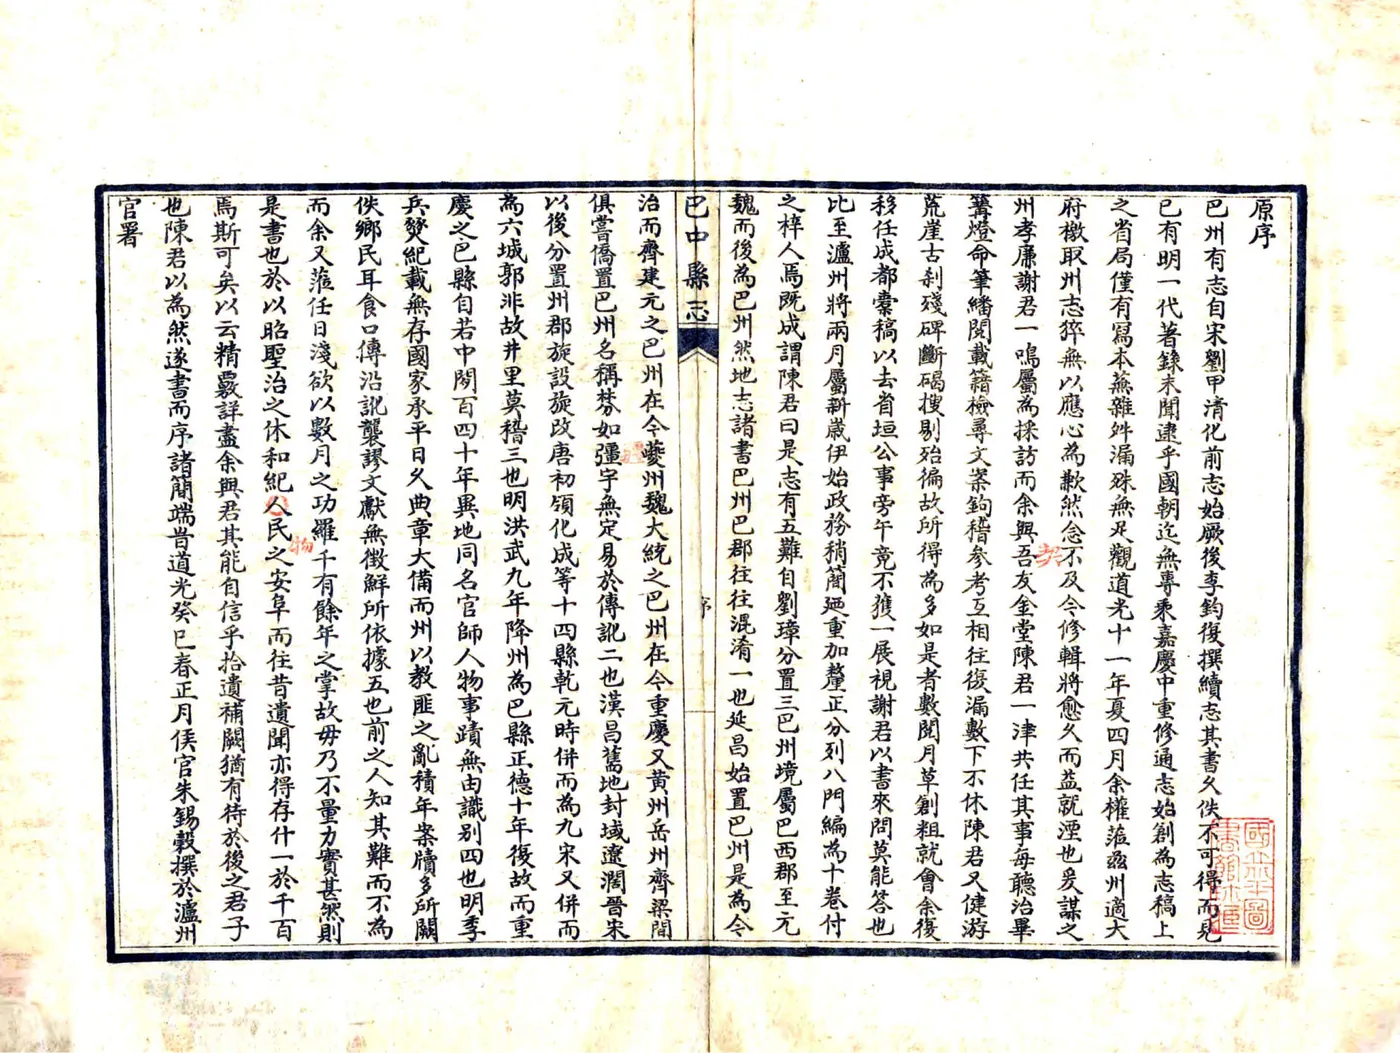 原序
巴州有志自宋劉甲清化前志始厥後李鈞復撰續志其書久佚不可得而見
已有明一代著錄未聞逮乎國朝迄無專乘嘉慶中重修通志始創為志稿上
之省局僅有寫本蕪雜舛漏殊無足觀道光十一年夏四月余權蒞茲州適大
府檄取州志猝無以應心為歉然念不及今修輯將愈久而益就湮也爰謀之
州孝廉謝君一鳴屬為採訪而余與吾友金堂陳君一津共任其事每聽治畢
篝燈命筆繙閱載籍檢尋文案鉤稽參考互相往復漏數下不休陳君又健游
荒崖古刹殘碑斷碣搜剔殆徧故所得為多如是者數閱月草創粗就會余復
移任成都橐稿以去省垣公事旁午竟不獲一展視謝君以書來問莫能答也
比至瀘州將兩月屬新歲伊始政務稍簡迺重加釐正分列八門編為十卷付
之梓人焉既成謂陳君曰是志有五難自劉璋分置三巴州境屬巴西郡至元
魏而後為巴州然地志諸書巴州巴郡往往混淆一也延昌始置巴州是為今
巴中縣志
序
治而齊建元之巴州在今夔州魏大統之巴州在今重慶又黃州岳州齊梁間
俱嘗僑置巴州名稱棼如彊宇無定易於傳訛二也漢昌舊地封域遼濶晉宋
以後分置州郡旋設旋改唐初領化成等十四縣乾元時併而為九宋又併而
為六城郭非故井里莫稽三也明洪武九年降州為巴縣正德十年復故而重
慶之巴縣自若中閱百四十年異地同名官師人物事蹟無由識别四也明季
兵燹紀載無存國家承平日久典章大備而州以教匪之亂積年案牘多所闕
佚鄉民耳食口傳沿訛襲謬文獻無徵鮮所依據五也前之人知其難而不為
而余又蒞任日淺欲以數月之功羅千有餘年之掌故毋乃不量力實甚然則
是書也於以昭聖治之休和紀人民之安阜而往昔遺聞亦得存什一於千百
焉斯可矣以云精覈詳盡余與君其能自信乎拾遺補闕猶有待於後之君子
也陳君以為然遂書而序諸簡端時道光癸巳春正月侯官朱錫穀撰於瀘州
官署
契
物